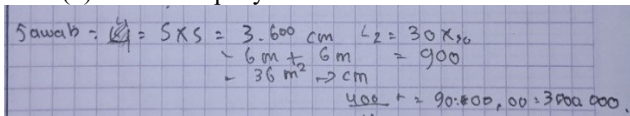 Jawab = L1 = S x S = 3.600 cm L2 = 30 x 30
= 6 m + 6 m = 900
= 36 m² → cm
400 + = 90.000,00 = 3000 000.